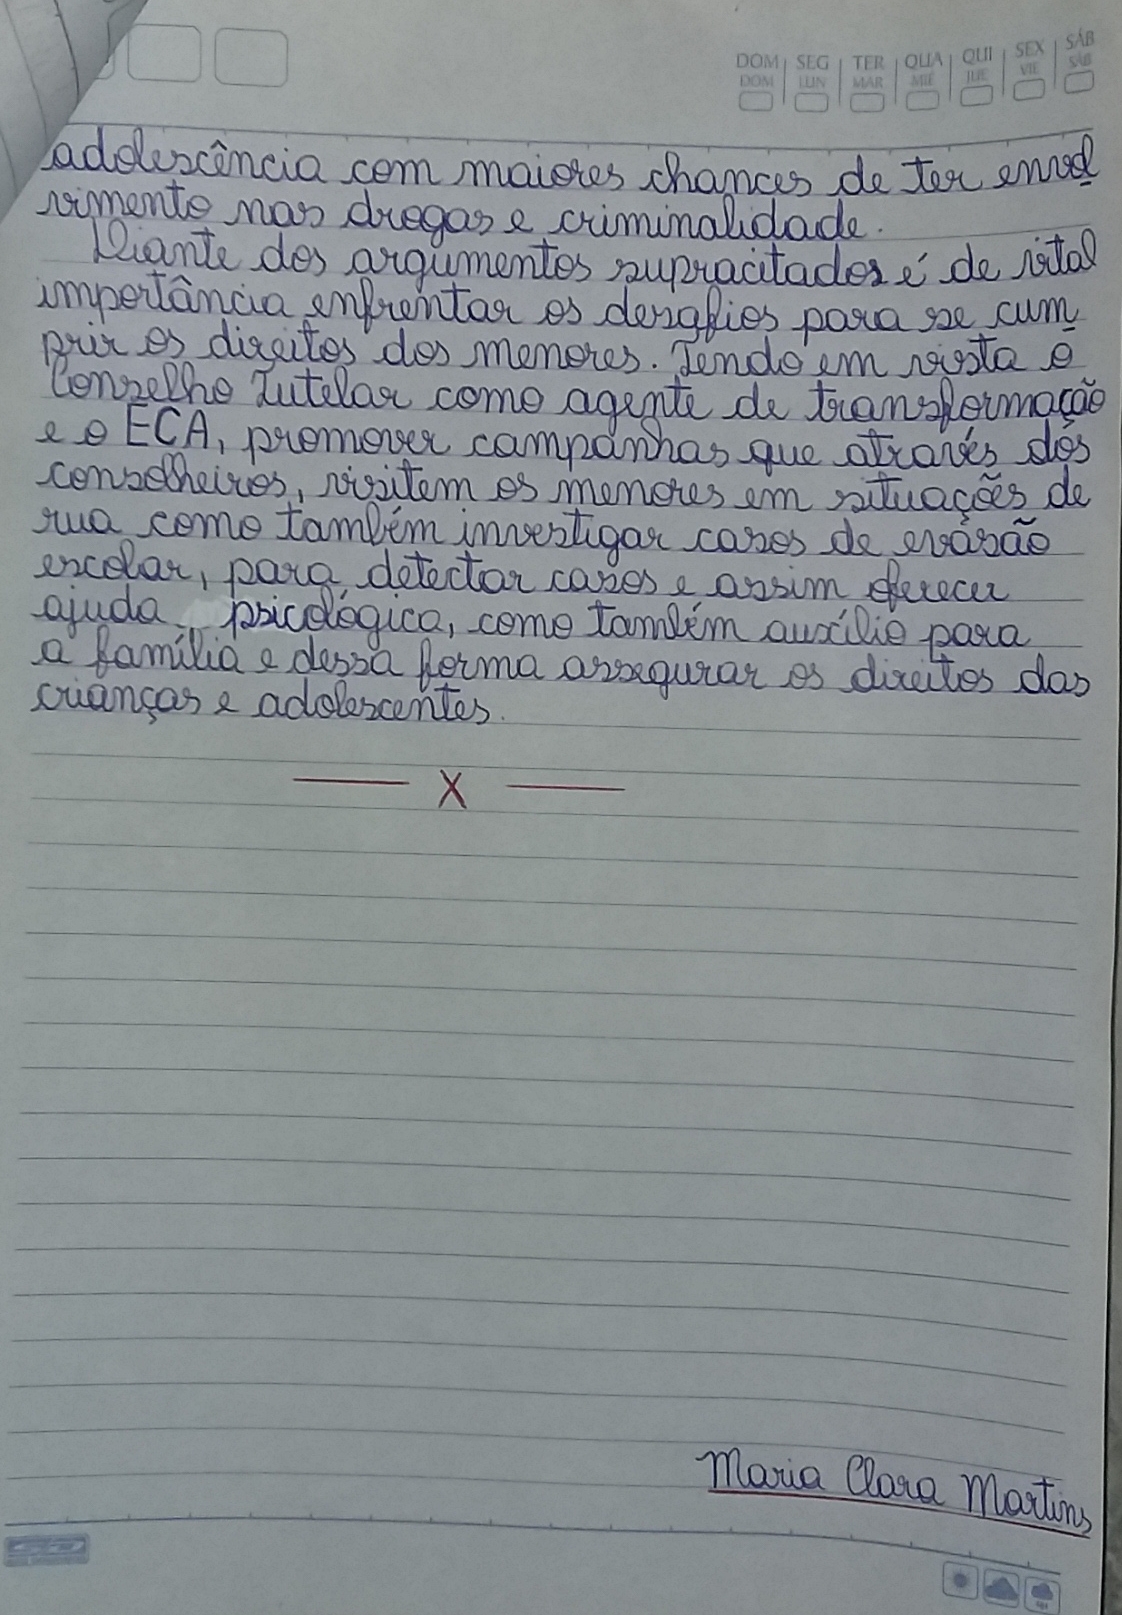 DOM SEG TER QUA QUI SEX SÁB
DOM LUN MAR MIÉ JUE VIE SÁB
adolescência com maiores chances de ter envol
vimento nas drogas e criminalidade.
Diante dos argumentos supracitados é de vital
importância enfrentar os desafios para se cum
prir os direitos dos menores. Tendo em vista o
Conselho Tutelar como agente de transformação
e o ECA, promover campanhas que através dos
conselheiros, visitem os menores em situações de
rua como também investigar casos de evasão
escolar, para detectar casos e assim oferecer
ajuda psicológica, como também auxílio para
a família e dessa forma assegurar os direitos das
crianças e adolescentes.
— X —
Maria Clara Martins